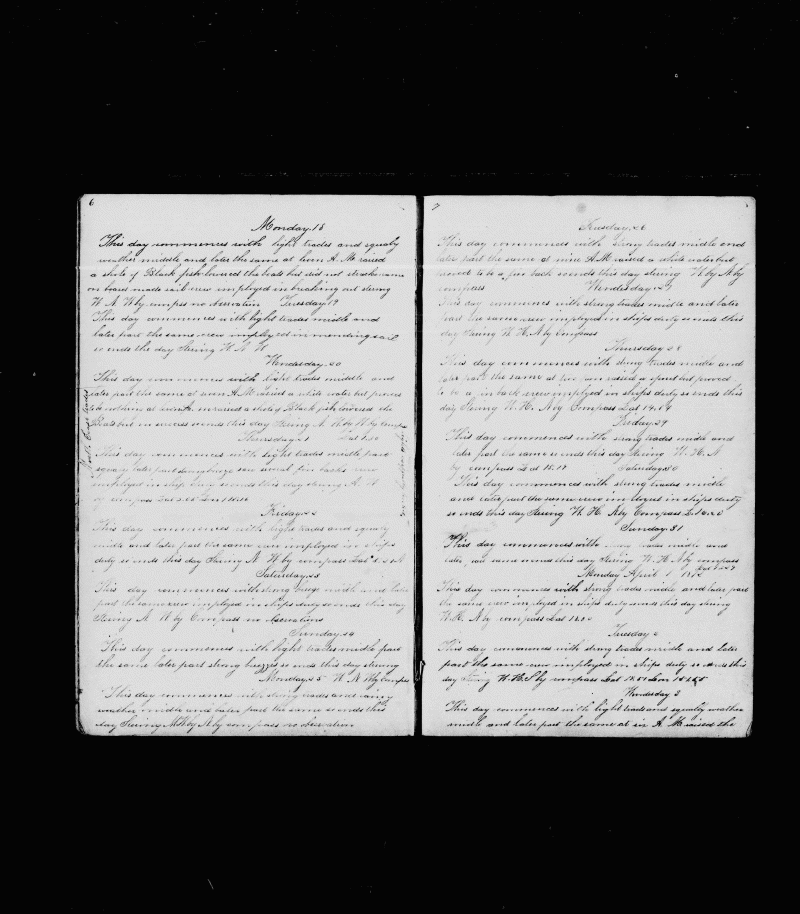 6
Monday 18
This day commences with light trades and squaly
weather middle and later the same at noon A.M raised
a shole of Black fish lowered the boats but did not strike came
on board made sail crew employed in breaking out string
W N W by compss no observation Tuesday 19
This day commences with light trades middle and
later part the same crew employed in mending sail
so ends the day Stering W N W
Wensday 20
This day commences with light trades middle and
later part same at A.M raised a white water but proved
to nothing at raised a shole of Black fish lowered the
Boats but no success ends this day Stering N W by W by Compss
Thursday 21 Lat
This day commences with light trades midle part
squaly later part strong breeze saw several fin backs crew
employed in ship duty so ends this day string N W
by compass Lat Lon
Friday 22
This day commences with light trades and squaly
midle and later part the same crew employed in ships
duty so ends this day Stering N W by compass Lat
Saturday 23
This day commences with strong breeze midle and later
part the same crew employed in ships duty so ends this day
Stering N W by Compass no observations
Sunday 24
This day commences with light trades midle part
the same later part strong breezes so ends this day strering
Monday 25 W N W by Compss
This day commences with strong trades and rainy
weather midle and later part the same so ends this
day Stering NW by N by compass no observation
7
Tuesday 26
This day commences with strong trades midle and
later part the same at nine A.M raised a white water but
proved to be a fin back so ends this day string W by N by
compass Wendesday 27
This day commences with strong trades midle and later
part the same crew employed in ships duty so ends this
day Stering W. N. N by Compass
Thursday 28
This day commences with strong trades midle and
later part the same at two pm raised a spout but proved
to be a fin back crew employed in ships duty so ends this
day Stering W. N. N by Compass Lat 14.04
Friday 29
This day commences with strong trades midle and
later part the same so ends this day Stering W. N. N
by compass Lat 15.17 Saturday 30
This day commences with strong trades midle
and later part the same crew employed in ships duty
so ends this day Stering W. N. N by Compass L 16.20
Sunday 31
This day commences with trades midle and
later part same so ends this day Stering W. N. N by compass
Monday April 1 1872 Lat
This day commences with strong trades midle and later part
the same crew imployed in ships duty so ends this day string
W. N. N by compass Lat
Tuesday 2
This day commences with strong trades midle and later
part the same crew employed in ships duty so ends this
day string W. N. N by compass Lat Lon
Wendesday 3
This day commences with light trades and squaly weather
midle and later part the same at six A.M raised the